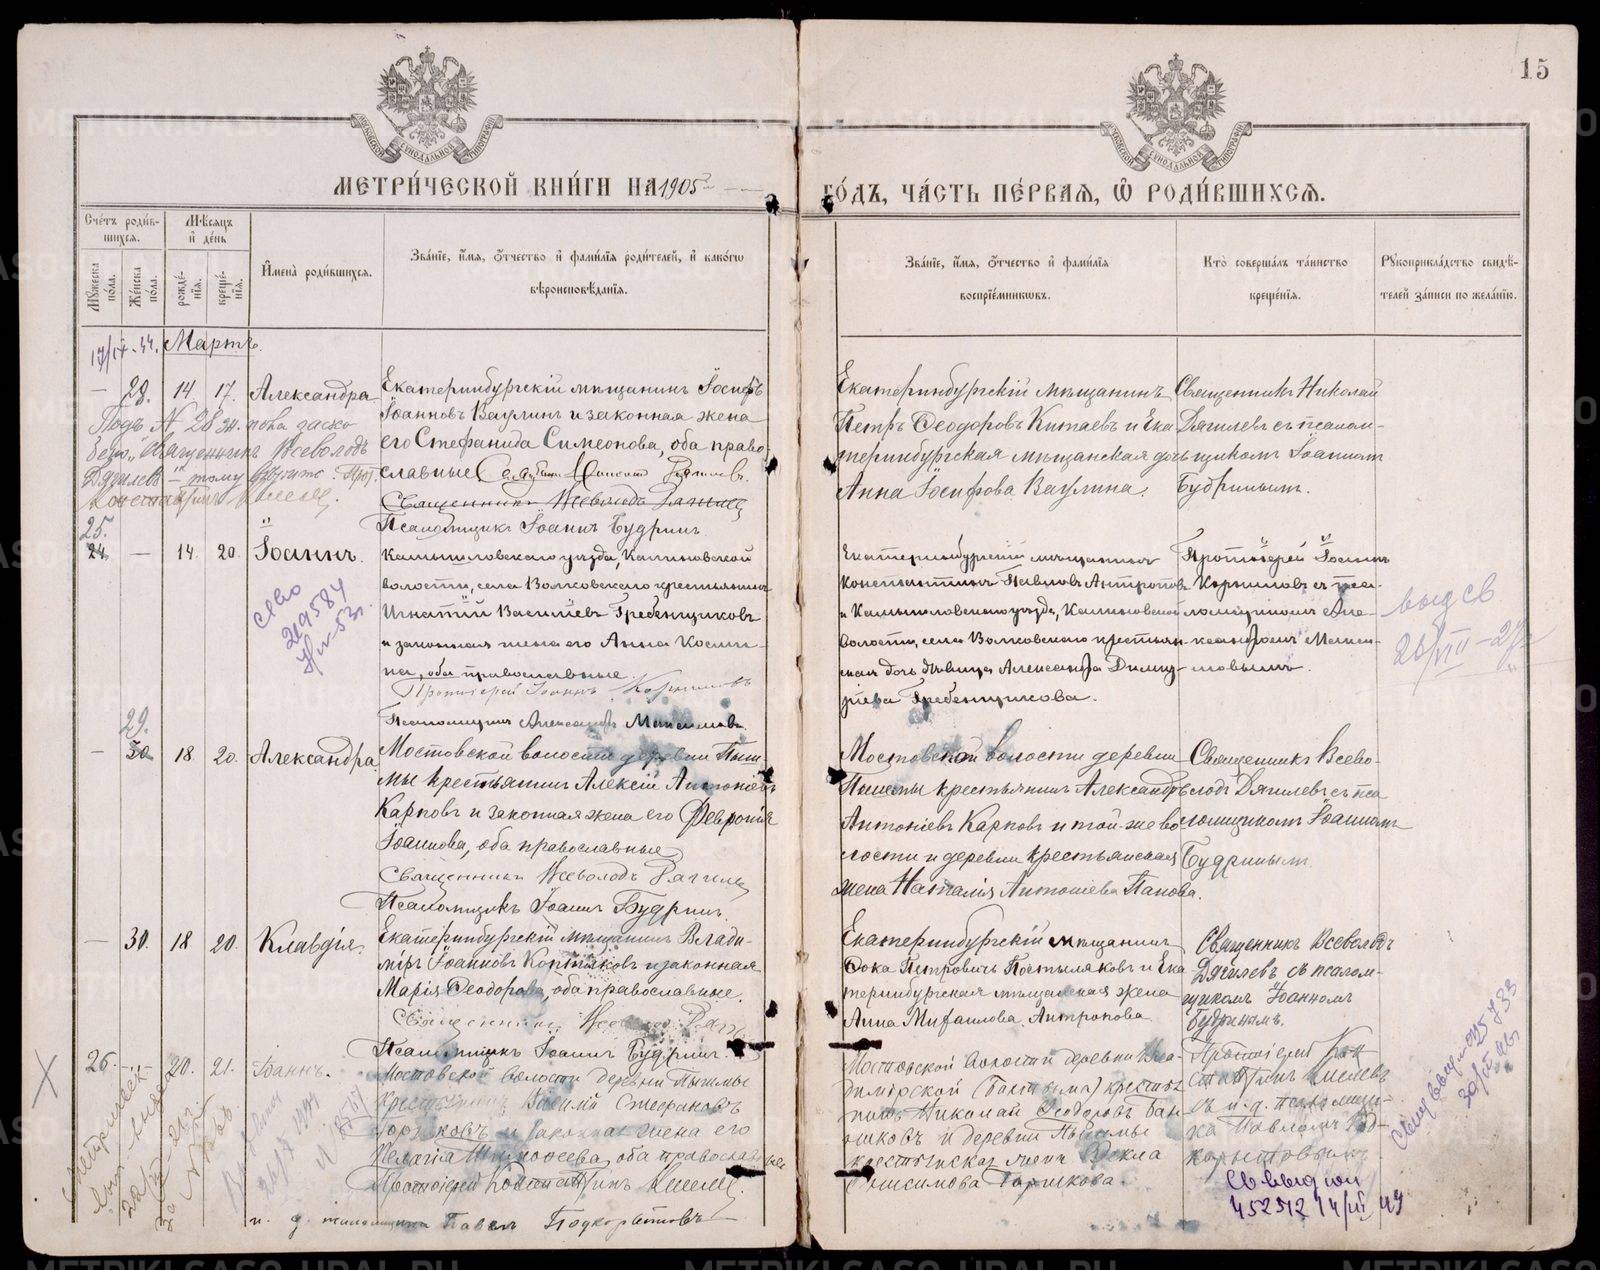 15
МЕТРИ́ЧЕСКОЙ КНИ́ГИ НА 1905 ГО́ДЪ, ЧА́СТЬ ПЕ́РВАЯ, Ѡ РОДИ́ВШИХСЯ.
Сче́тъ роди́в-
шихся.
Мѣ́сяцъ
и де́нь
Мꙋ́жеска по́ла.
Же́нска по́ла.
рожде́-
нія.
креще́-
нія.
Имена̀ роди́вшихся.
Зва́ніе, и́мя, о́тчество и фами́лія роди́телей, и како́гѡ
вѣроисповѣ́данія.
Зва́ніе, и́мя, о́тчество и фами́лія
воспріе́мниковъ.
Кто̀ соверша́лъ та́инство
креще́нія.
Рꙋкоприкла́дство свидѣ́-
телей за́писи по жела́нію.
17/IX-44. Мартъ.
— 28. 14 17. Александра
Екатеринбургскій мѣщанинъ Іосифъ
Іоанновъ Ваулинъ и законная жена
его Стефанида Симеонова, оба право-
славные
Священникъ Всеволодъ
Псаломщикъ Іоаннъ Будринъ.
Подъ № 28 ж. пола
Священникъ Всеволодъ
Екатеринбургскій мѣщанинъ
Петръ Ѳеодоровъ Китаевъ и Ека
теринбургская мѣщанская дочь
Анна Іосифова Ваулина.
Священникъ Николай
Дягилевъ съ псалом-
щикомъ Іоанномъ
Будринымъ.
25.
24. — 14. 20. Іоаннъ.
Камышловскаго уѣзда, Калиновской
волости, села Волковскаго крестьянинъ
Игнатій Василіевъ Гребенщиковъ
и законная жена его Анна Косми-
на, оба православные.
Протоіерей Іоаннъ Корниловъ
Псаломщикъ Александръ Максимовъ.
219584
Екатеринбургскій мѣщанинъ
Константинъ Павловъ Антроповъ
и Камышловскаго уѣзда, Калиновской
волости, села Волковскаго крестьян-
ская дочь дѣвица Александра Димит-
ріева Гребенщикова.
Протоіерей Іоаннъ
Корниловъ съ пса-
ломщикомъ Але-
ксандромъ Макси-
мовымъ.
29.
— 30. 18 20. Александра
Мостовской волости деревни Пыш-
мы крестьянинъ Алексій Антоніевъ
Карповъ и законная жена его Февронія
Іоаннова, оба православные
Священникъ Всеволодъ
Псаломщикъ Іоаннъ Будринъ.
Мостовской волости деревни
Пышмы крестьянинъ Александръ
Антоніевъ Карповъ и той-же во-
лости и деревни крестьянская
жена Наталія Антоніева Панова.
Священникъ Всево-
лодъ Дягилевъ съ пса
ломщикомъ Іоанномъ
Будринымъ.
— 30. 18 20. Клавдія.
Екатеринбургскій мѣщанинъ Влади-
міръ Іоанновъ и законная
Марія Ѳеодорова, оба православные.
Священникъ
Псаломщикъ Іоаннъ Будринъ.
Екатеринбургскій мѣщанинъ
Ѳока Петровичъ Постыляковъ и Ека
теринбургская мѣщанская жена
Анна Михаилова Антропова
Священникъ Всеволодъ
Дягилевъ съ псалом-
щикомъ Іоанномъ
Будринымъ.
26. — 20. 21. Іоаннъ.
Мостовской волости деревни Пышмы
крестьянинъ Василій Стефановъ
и законная жена его
Пелагія Тимоѳеева, оба православные
Протоіерей Константинъ
и. д. псаломщика Павелъ Подкорытовъ
Мостовской волости деревни
крестья
нинъ Николай Ѳеодоровъ
и деревни Пышмы
крестьянская жена Ѳекла
Анисимова
Протоіерей Кон-
стантинъ
съ и. д. псаломщи-
ка Павломъ Под-
корытовымъ
Св выдан
452512 14/III 49